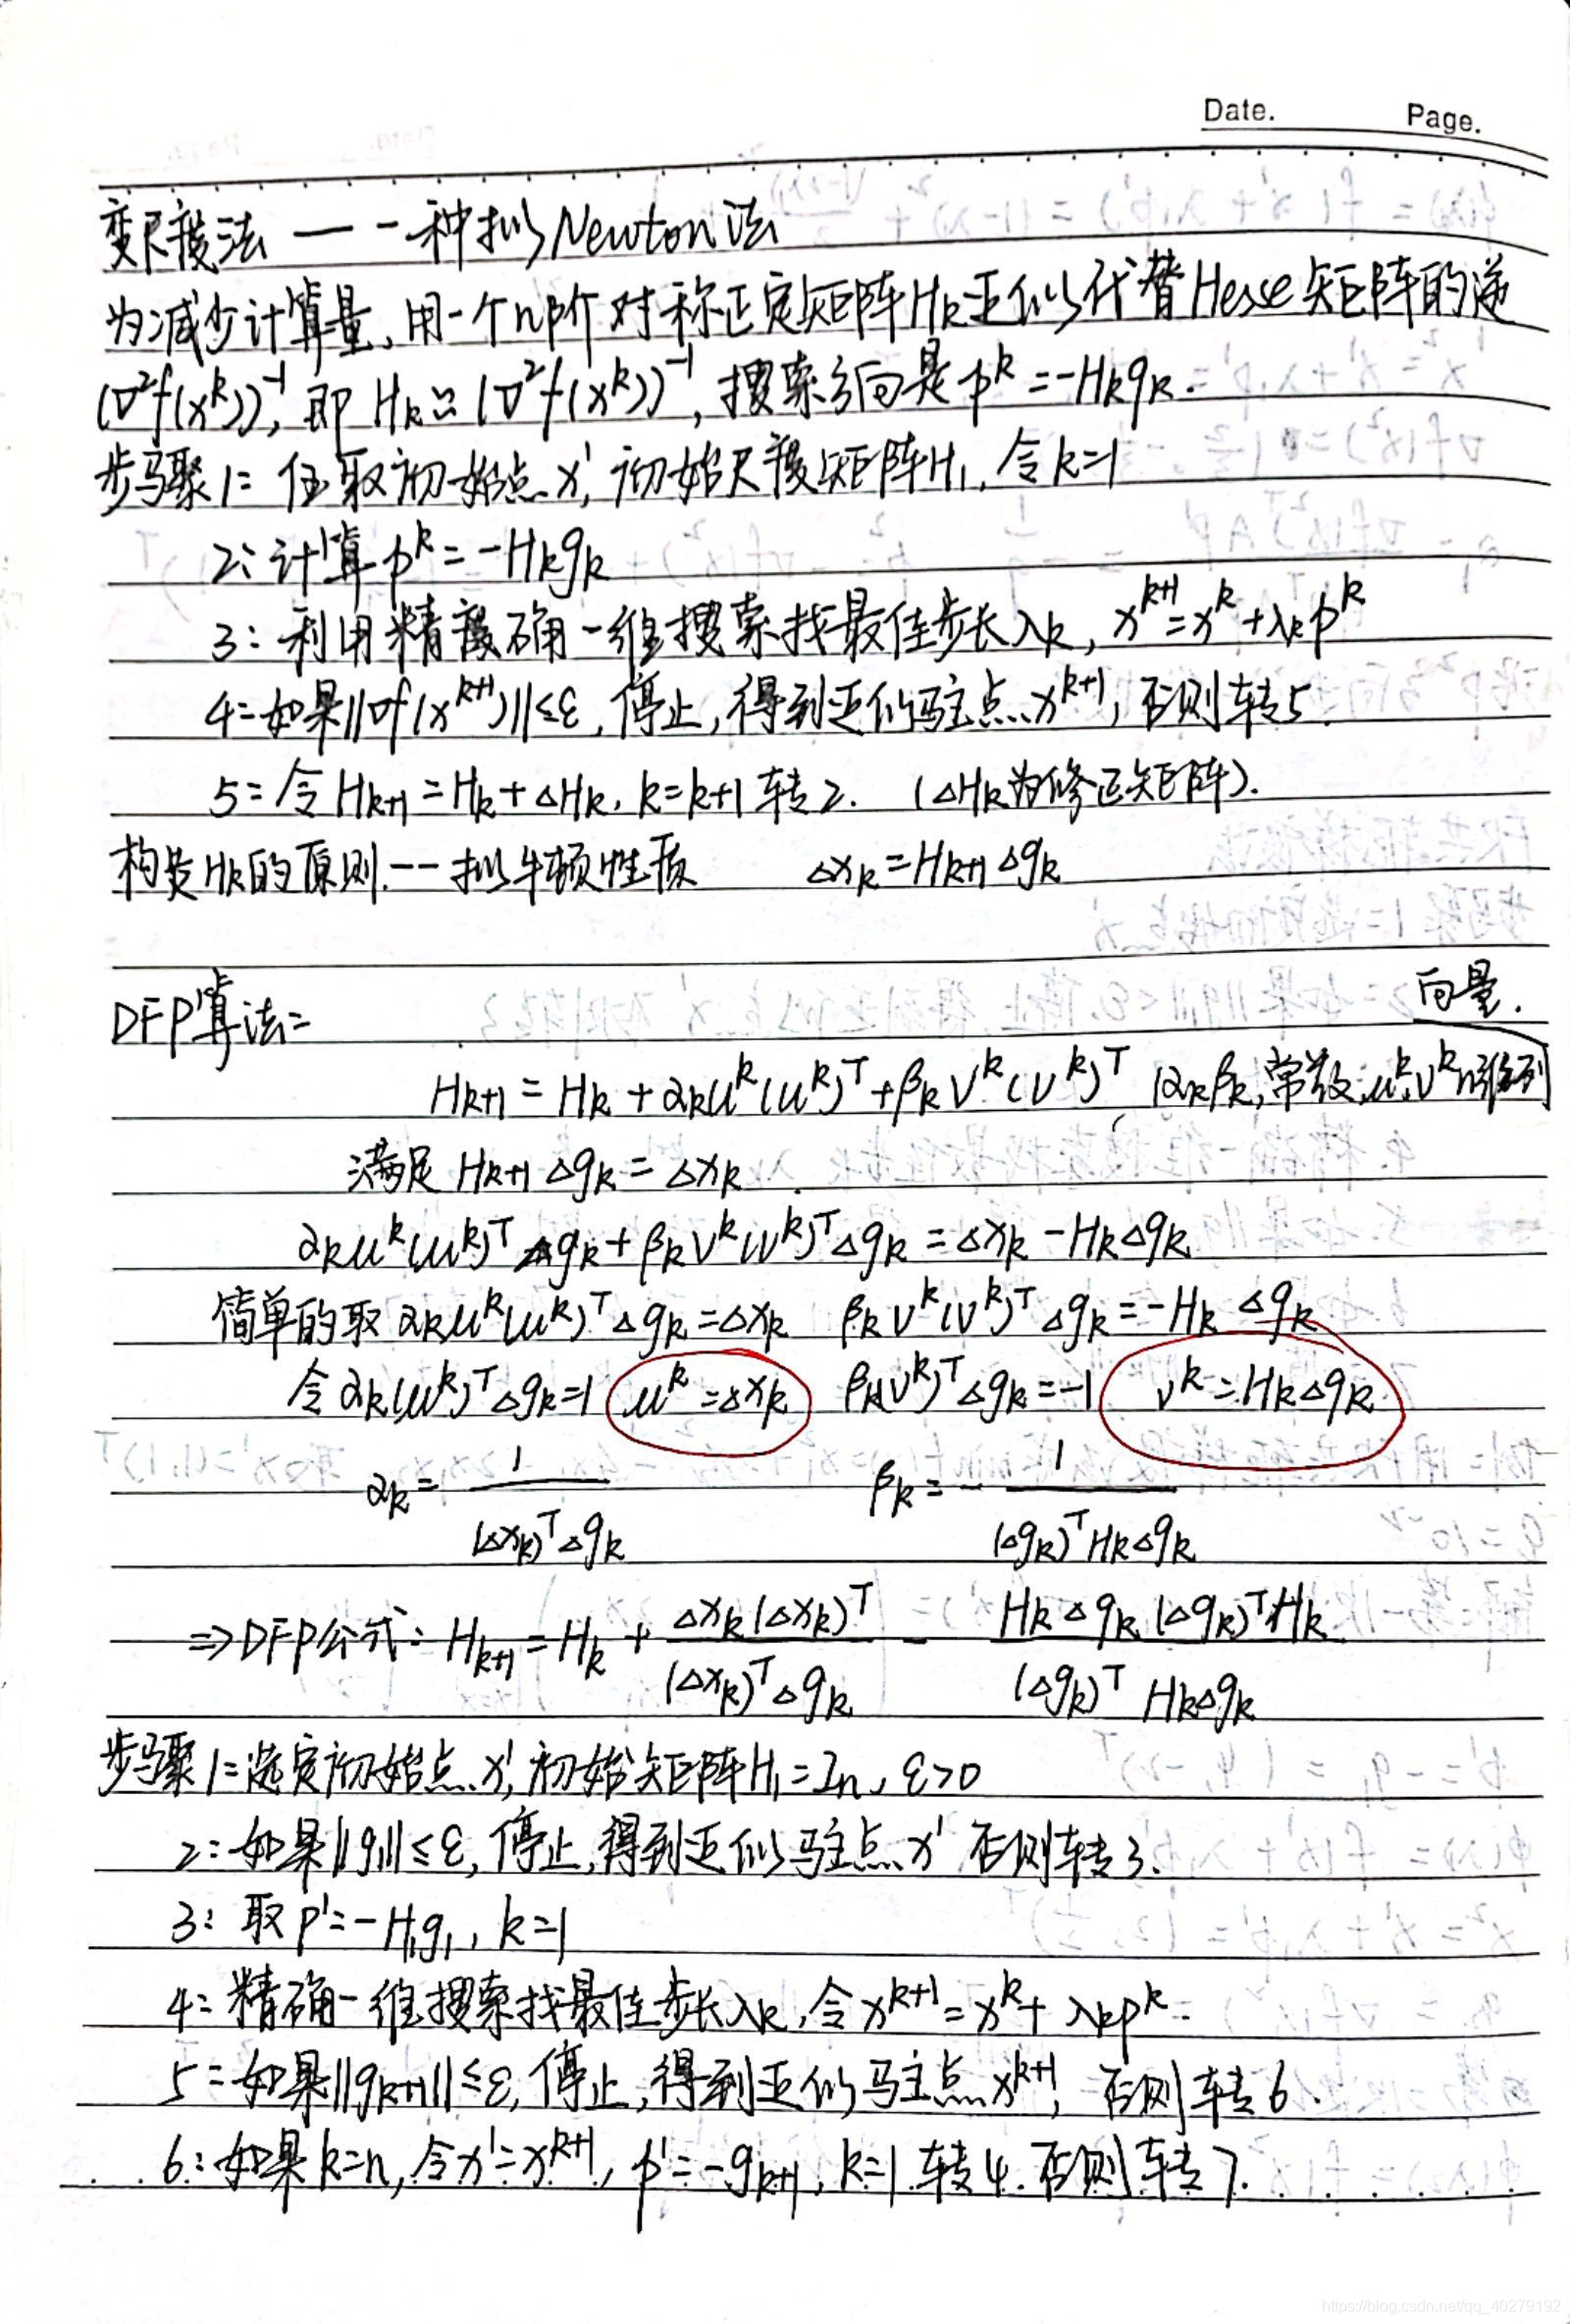 Date. Page.
变尺度法 — 一种拟Newton法
为减少计算量,用一个n阶对称正定矩阵Hk近似代替Hesse矩阵的逆
(∇²f(x^k))^-1, 即 Hk≈(∇²f(x^k))^-1, 搜索方向是 p^k = -Hkgk.
步骤1: 任取初始点x^1, 初始尺度矩阵H1, 令k=1
2: 计算p^k = -Hkgk
3: 利用精确一维搜索找最佳步长λk, x^k+1 = x^k + λkp^k
4: 如果||∇f(x^k+1)||≤ε, 停止, 得到近似驻点x^k+1, 否则转5.
5: 令Hk+1 = Hk + ΔHk, k=k+1 转2. (ΔHk为修正矩阵).
构造Hk的原则 -- 拟牛顿性质 Δxk = Hk+1Δgk
向量.
DFP算法:
Hk+1 = Hk + αku^k(u^k)^T + βkv^k(v^k)^T (αk,βk,常数,u^k,v^k n维列
满足 Hk+1Δgk = Δxk
αku^k(u^k)^TΔgk + βkv^k(v^k)^TΔgk = Δxk - HkΔgk
简单的取 αku^k(u^k)^TΔgk = Δxk βkv^k(v^k)^TΔgk = -HkΔgk
令αk(u^k)^TΔgk = 1 u^k = Δxk βk(v^k)^TΔgk = -1 v^k = HkΔgk
αk = 1/((Δxk)^TΔgk) βk = - 1/((Δgk)^THkΔgk)
⇒DFP公式: Hk+1 = Hk + Δxk(Δxk)^T/((Δxk)^TΔgk) - HkΔgk(Δgk)^THk/((Δgk)^T HkΔgk)
步骤1: 选定初始点x^1, 初始矩阵H1 = In, ε>0
2: 如果||g1||≤ε, 停止, 得到近似驻点x^1 否则转3.
3: 取p^1 = -H1g1, k=1
4: 精确一维搜索找最佳步长λk, 令x^k+1 = x^k + λkp^k.
5: 如果||gk+1||≤ε, 停止, 得到近似驻点x^k+1, 否则转6.
6: 如果k=n, 令x^1 = x^k+1, p^1 = -gk+1, k=1 转4. 否则转7.
https://blog.csdn.net/qq_40279192